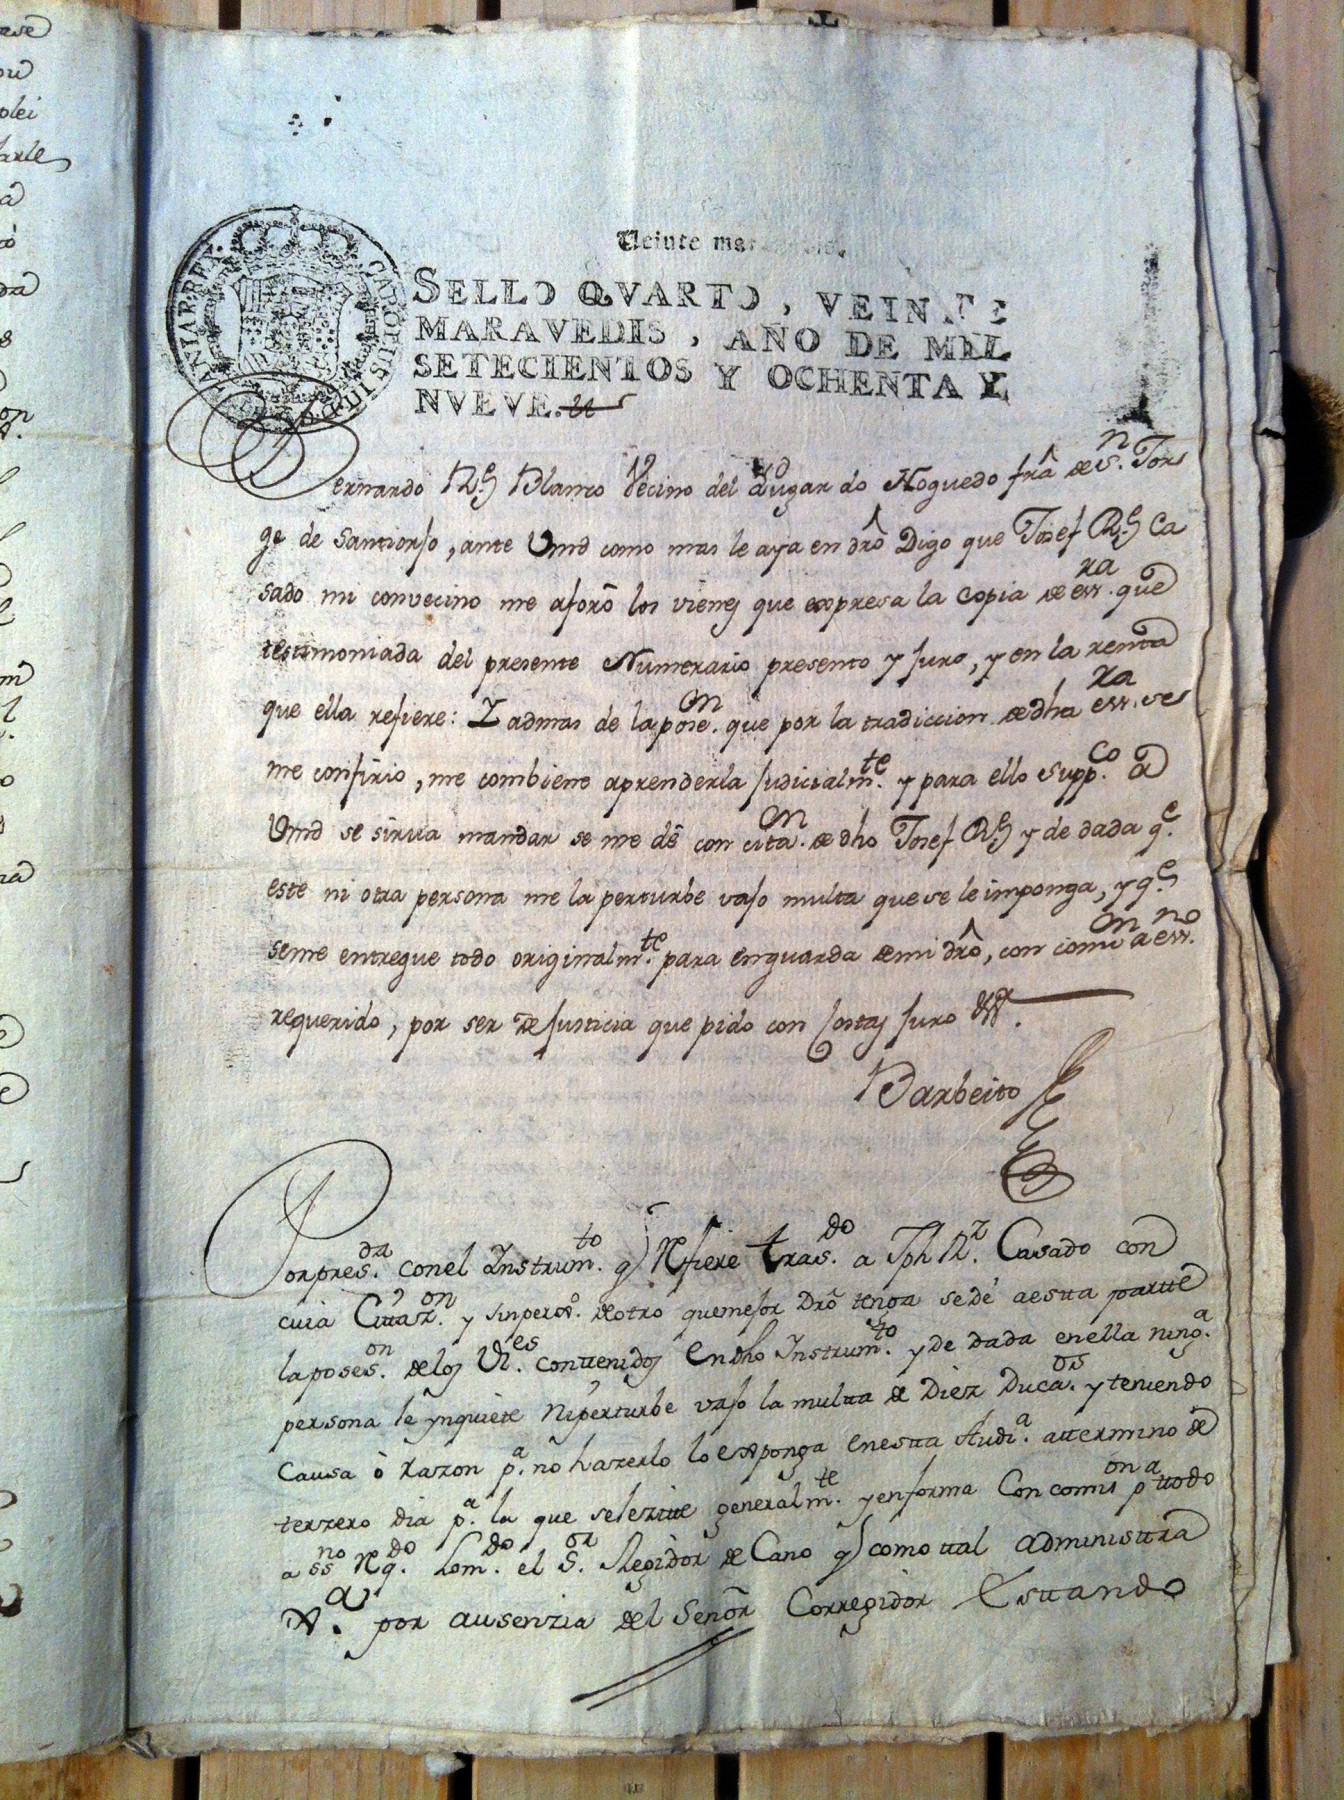 Veinte maravedis.
CAROLUS IIII D G HISPANIAR REX
SELLO QVARTO, VEINTE
MARAVEDIS, AÑO DE MIL
SETECIENTOS Y OCHENTA Y
NVEVE.
Bernardo Rs Blanco Vecino del Lugar do Noguedo frã de Sn. Jor
ge de Santiorjo, ante Vmd como mas le aya en drô Digo que Josef Rs Ca
sado mi convecino me aforó los vienes que expresa la copia de essra. que
testimoniada del presente Numerario presento y juro, y en la renta
que ella refiere: Y admas de la poseon. que por la tradiccion de dha essra. se
me confirio, me combiene aprenderla judicialmte. y para ello suppco. a
Vmd se sirva mandar se me dé con citaon. de dho Josef Rs y de dada qe.
este ni otra persona me la perturbe vajo multa que se le imponga, y qe
seme entregue todo originalmte. para enguarda de mi drô, con comion a essno.
requerido, por ser de Justicia que pido con costas juro &a.
Barbeito
Por presda. con el Instrumto. q Refiere trasdo. a Jph Rz. Casado con
cuia Cittazon. y sin perxo. de otro que mejor Drô tenga se dé a estta partte
la poseson. de los Vies. conttenidos en dho Instrumto. y de dada en ella ninga.
persona le ynquiete Ni perturbe vajo la multta de Diez Ducaos. y teniendo
Causa ò razon pa. no hazerlo lo exponga en estta Audia. a ttermino de
terzero dia pa. la que se le zitte generalmte. y en forma Con comision pa ttodo
a essno Rqdo. Lo mdo. el Sor. Regidor de Cano q como ttal administtra
Xa. por ausenzia del Señor Corregidor Esttando